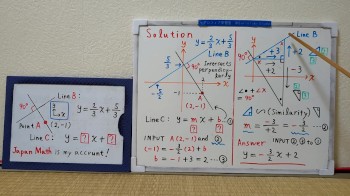 Line B:
y = 2/3 x + 5/3
90°
Point A (2, -1)
Line C: y = ? x + ?
Japan Math is my account!
Solution
y = 2/3 x + 5/3
Line B
Intersects
perpendic-
ularity
90°
5/3
(2, -1)
Line C: y = m x + b. ①
INPUT A (2, -1) and ③
(-1) = -3/2 (2) + b
b = -1 + 3 = 2 ... ②
Line B
90°
+3
+2
+2
-3
(Similarity)
m = -3/+2 = -3/2 ... ③
Answer INPUT ②, ③ to ①
y = -3/2 x + 2